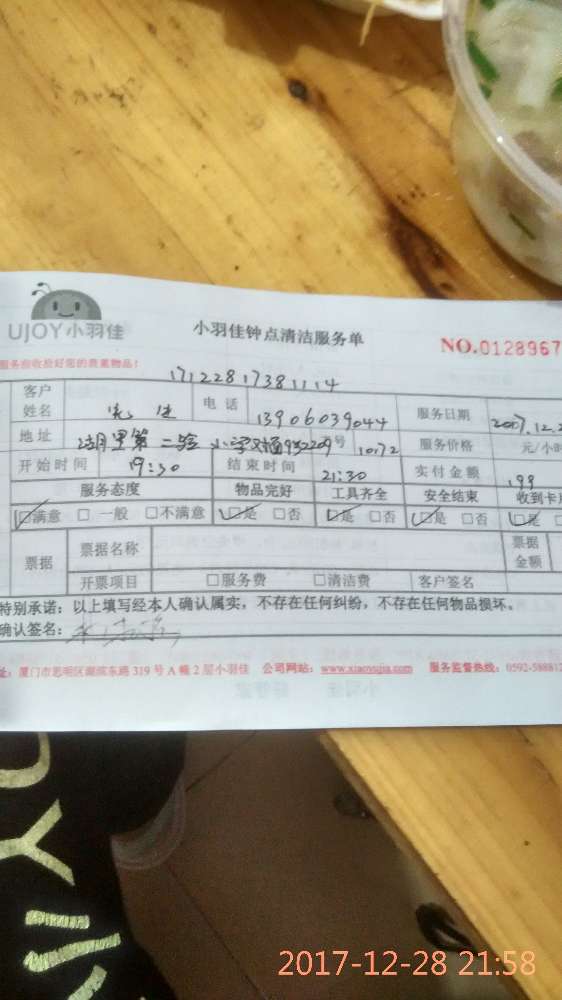 UJOY小羽佳
小羽佳钟点清洁服务单
NO.0128967
17122817381114
客户姓名 先生 电话 13906039044 服务日期 2017.12.2
地址 第二 小学 号 10172 服务价格 元/小时
开始时间 19:30 结束时间 21:30 实付金额 199
服务态度 物品完好 工具齐全 安全结束 收到卡
☑满意 □一般 □不满意 ☑是 □否 ☑是 □否 ☑是 □否 ☑是
票据 票据名称 票据金额
开票项目 □服务费 □清洁费 客户签名
特别承诺：以上填写经本人确认属实，不存在任何纠纷，不存在任何物品损坏。
确认签名：
址：厦门市思明区湖滨东路 319 号 A 幢 2 层小羽佳 公司网站：www.xiaoyujia.com 服务监督热线：0592-58881
2017-12-28 21:58